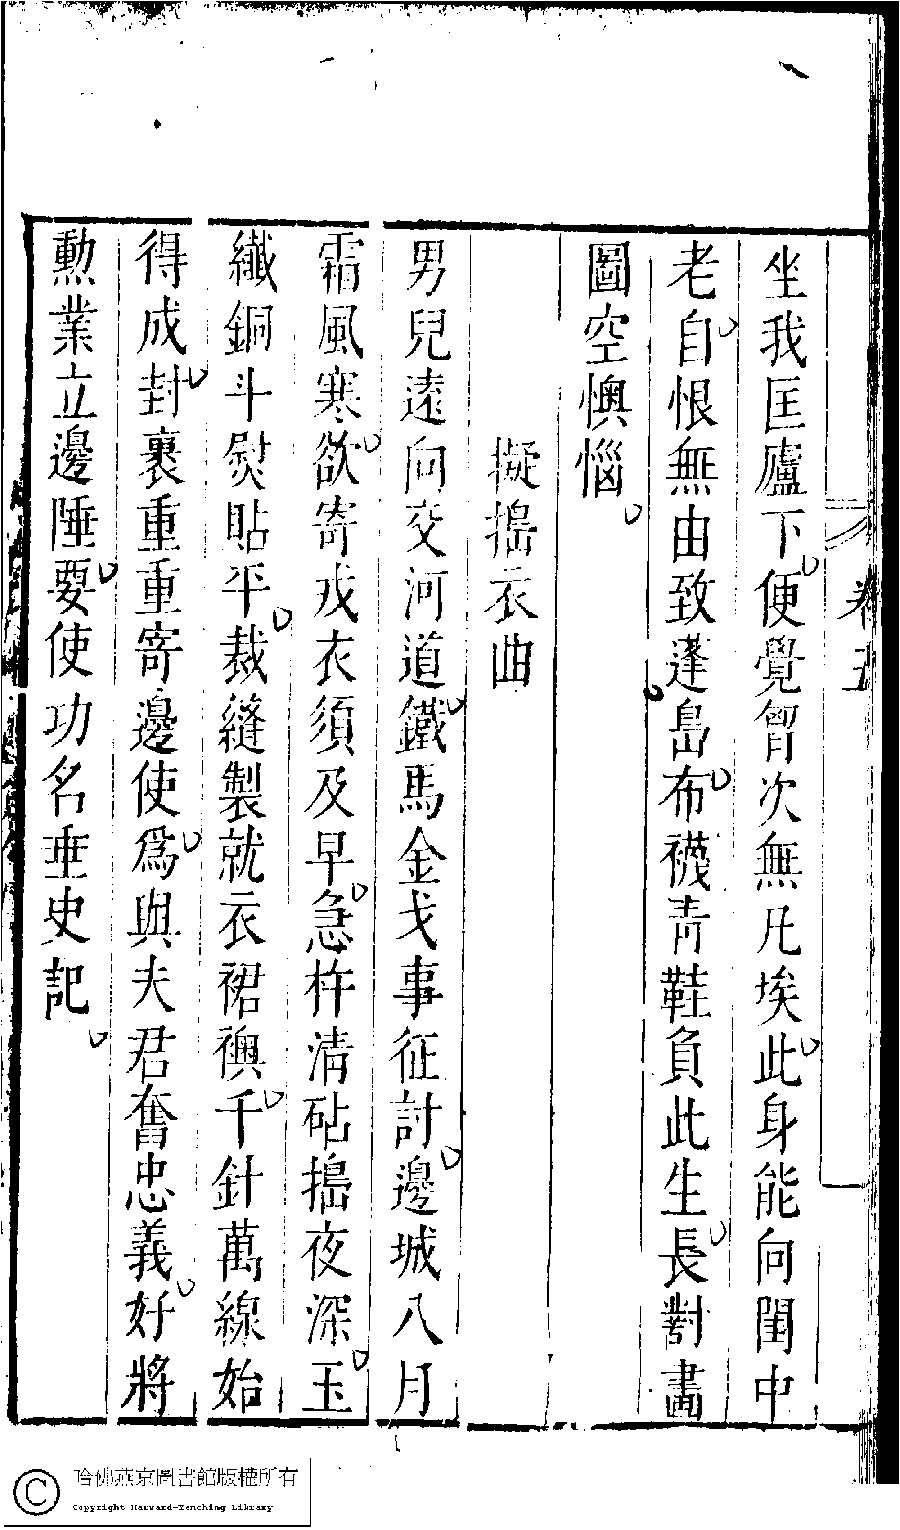 卷五
坐我匡廬下便覺胷次無凡埃此身能向閨中
老自恨無由致蓬島布襪青鞋負此生長對畵
圖空懊惱
擬搗衣曲
男兒遠向交河道鐵馬金戈事征討邊城八月
霜風寒欲寄戎衣須及早急杵清砧搗夜深玉
纖銅斗熨貼平裁縫製就衣裙襖千針萬線始
得成封裹重重寄邊使爲與夫君奮忠義好將
勲業立邊陲要使功名垂史記
哈佛燕京圖書館版權所有
Copyright Harvard-Yenching Library